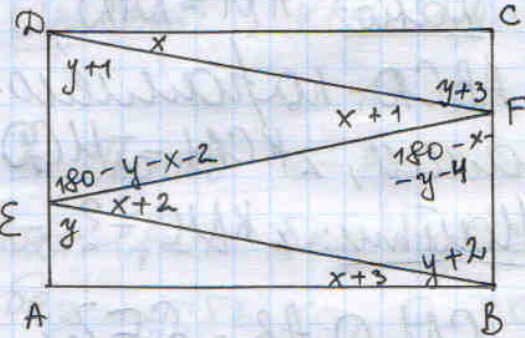 D
C
x
y+1
y+3
x+1
F
180-y-x-2
180-x-
-y-4
E
x+2
y
y+2
x+3
A
B